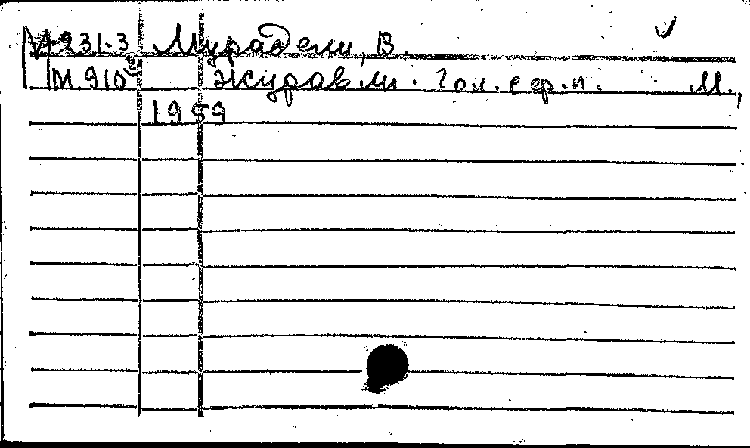 М231-3 Мурадели, В.
М 910 Журавли. Гол. с ф.п. М.,
1959